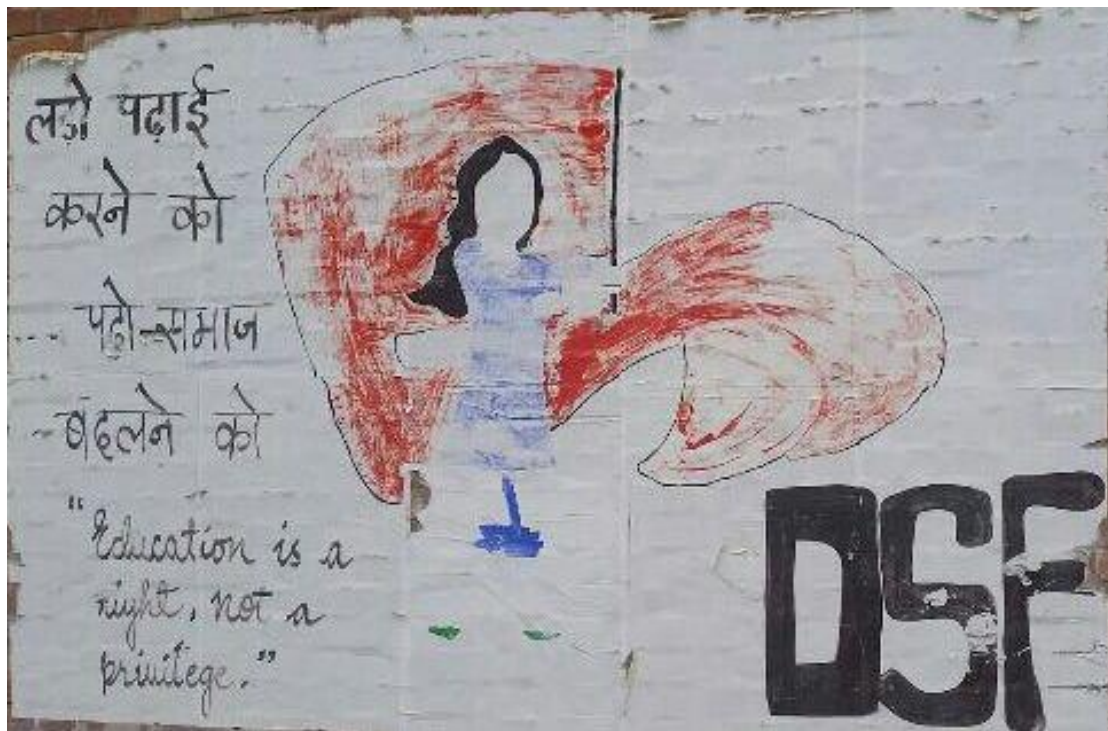 लड़ो पढ़ाई
करने को
पढ़ो-समाज
बदलने को
"Education is a
right, not a
privilege."
DSF